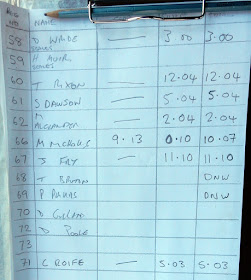 NAME
58 D WADE — 3.00 3.00
59 H
60 T RIXON 12.04 12.04
61 S DAWSON — 5.04 5.04
62 M ALEXANDER — 2.04 2.04
66 M 9.13 0.10 10.07
67 S FRY — 11.10 11.10
68 T DNW
69 P DNW
70 D
72 D POOLE
73
71 C ROIFE — 5.03 5.03